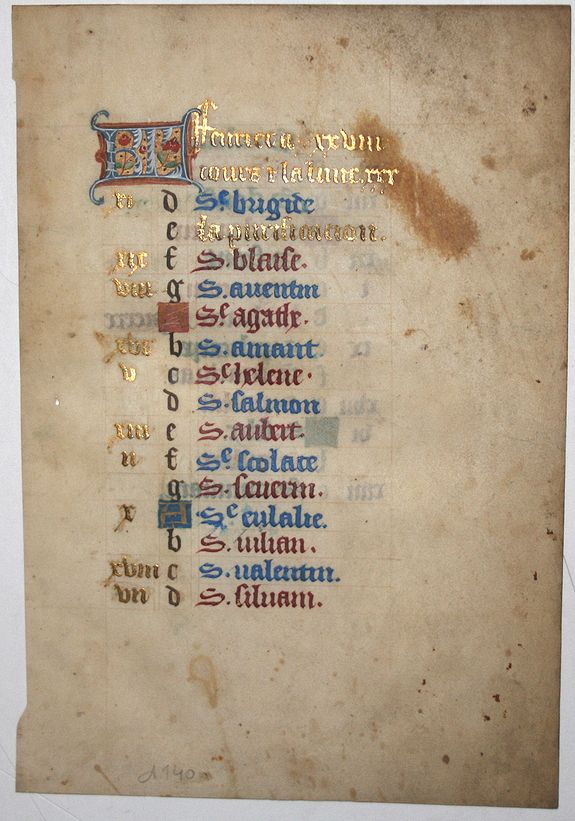 KL Feurier a xxviii
iours & la lune. xxx
xi d Sᵉ brigide
e La purification.
xix f S. blaise.
viii g S. auentin
A Sᵉ agathe.
xvi b S. amant.
v c Sᵉ helene.
d S. salmon
xiii e S. aubert.
ii f Sᵉ scolace
g S. seuerin.
x A Sᵉ eulalie.
b S. iulian.
xviii c S. ualentin.
vii d S. siluain.
1140